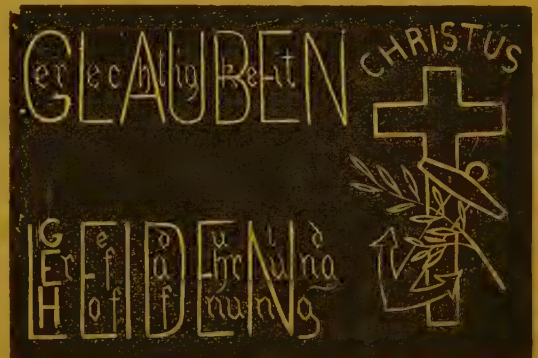 GLAUBEN
Gerechtigkeit
CHRISTUS
LEIDEN
Geduld
Erfahrung
Hoffnung